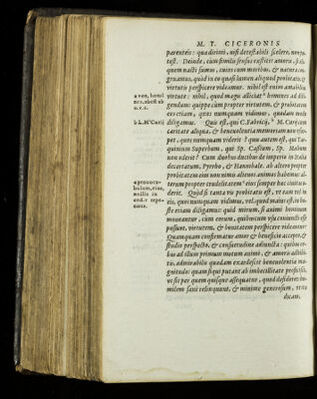 M. T. CICERONIS
parentes: qua dirimi, nisi detestabili scelere, non po
test. Deinde, cum similis sensus exstitit amoris, si ali
quem nacti sumus, cuius cum moribus, & natura con
gruamus, quod in eo quasi lumen aliquod probitatis, &
virtutis perspicere videamur. nihil est enim amabilius
virtute: nihil, quod magis alliciat homines ad dili
gendum: quippe cum propter virtutem, & probitatem
eos etiam, quos numquam vidimus, quodam modo
diligamus. Quis est, qui C. Fabricij, M. Curij non
caritate aliqua, & benevolentia memoriam
quos numquam viderit? quis autem est, qui Tar-
quinium Superbum, qui Sp. Cassium, Sp. Malium
non oderit? Cum duobus ducibus de imperio in Italia
decertatum, Pyrrho, & Hannibale. ab altero propter
probitatem eius non nimis alienos animos habemus: al
terum propter crudelitatem semper hac civitas o
derit. Quod si tanta vis probitatis est, ut eam vel in
eis, quos numquam vidimus, vel, quod maius est, in ho
ste etiam diligamus: quid mirum, si animi hominum
moveantur, cum eorum, quibuscum usu coniuncti esse
possunt, virtutem, & bonitatem perspicere videantur
Quamquam confirmatur amor & beneficio accepto, &
studio perspecto, & consuetudine adiuncta: quibus re-
bus ad illum primum motum animi, & amoris adhibi-
tis, admirabilis quadam exardescit benevolentia ma-
gnitudo: quam si qui putant ab imbecillitate proficisci,
ut sit per quem quisque assequatur, quod desideret: hu-
milem sane relinquunt, & minime generosum, ut ita
dicam,